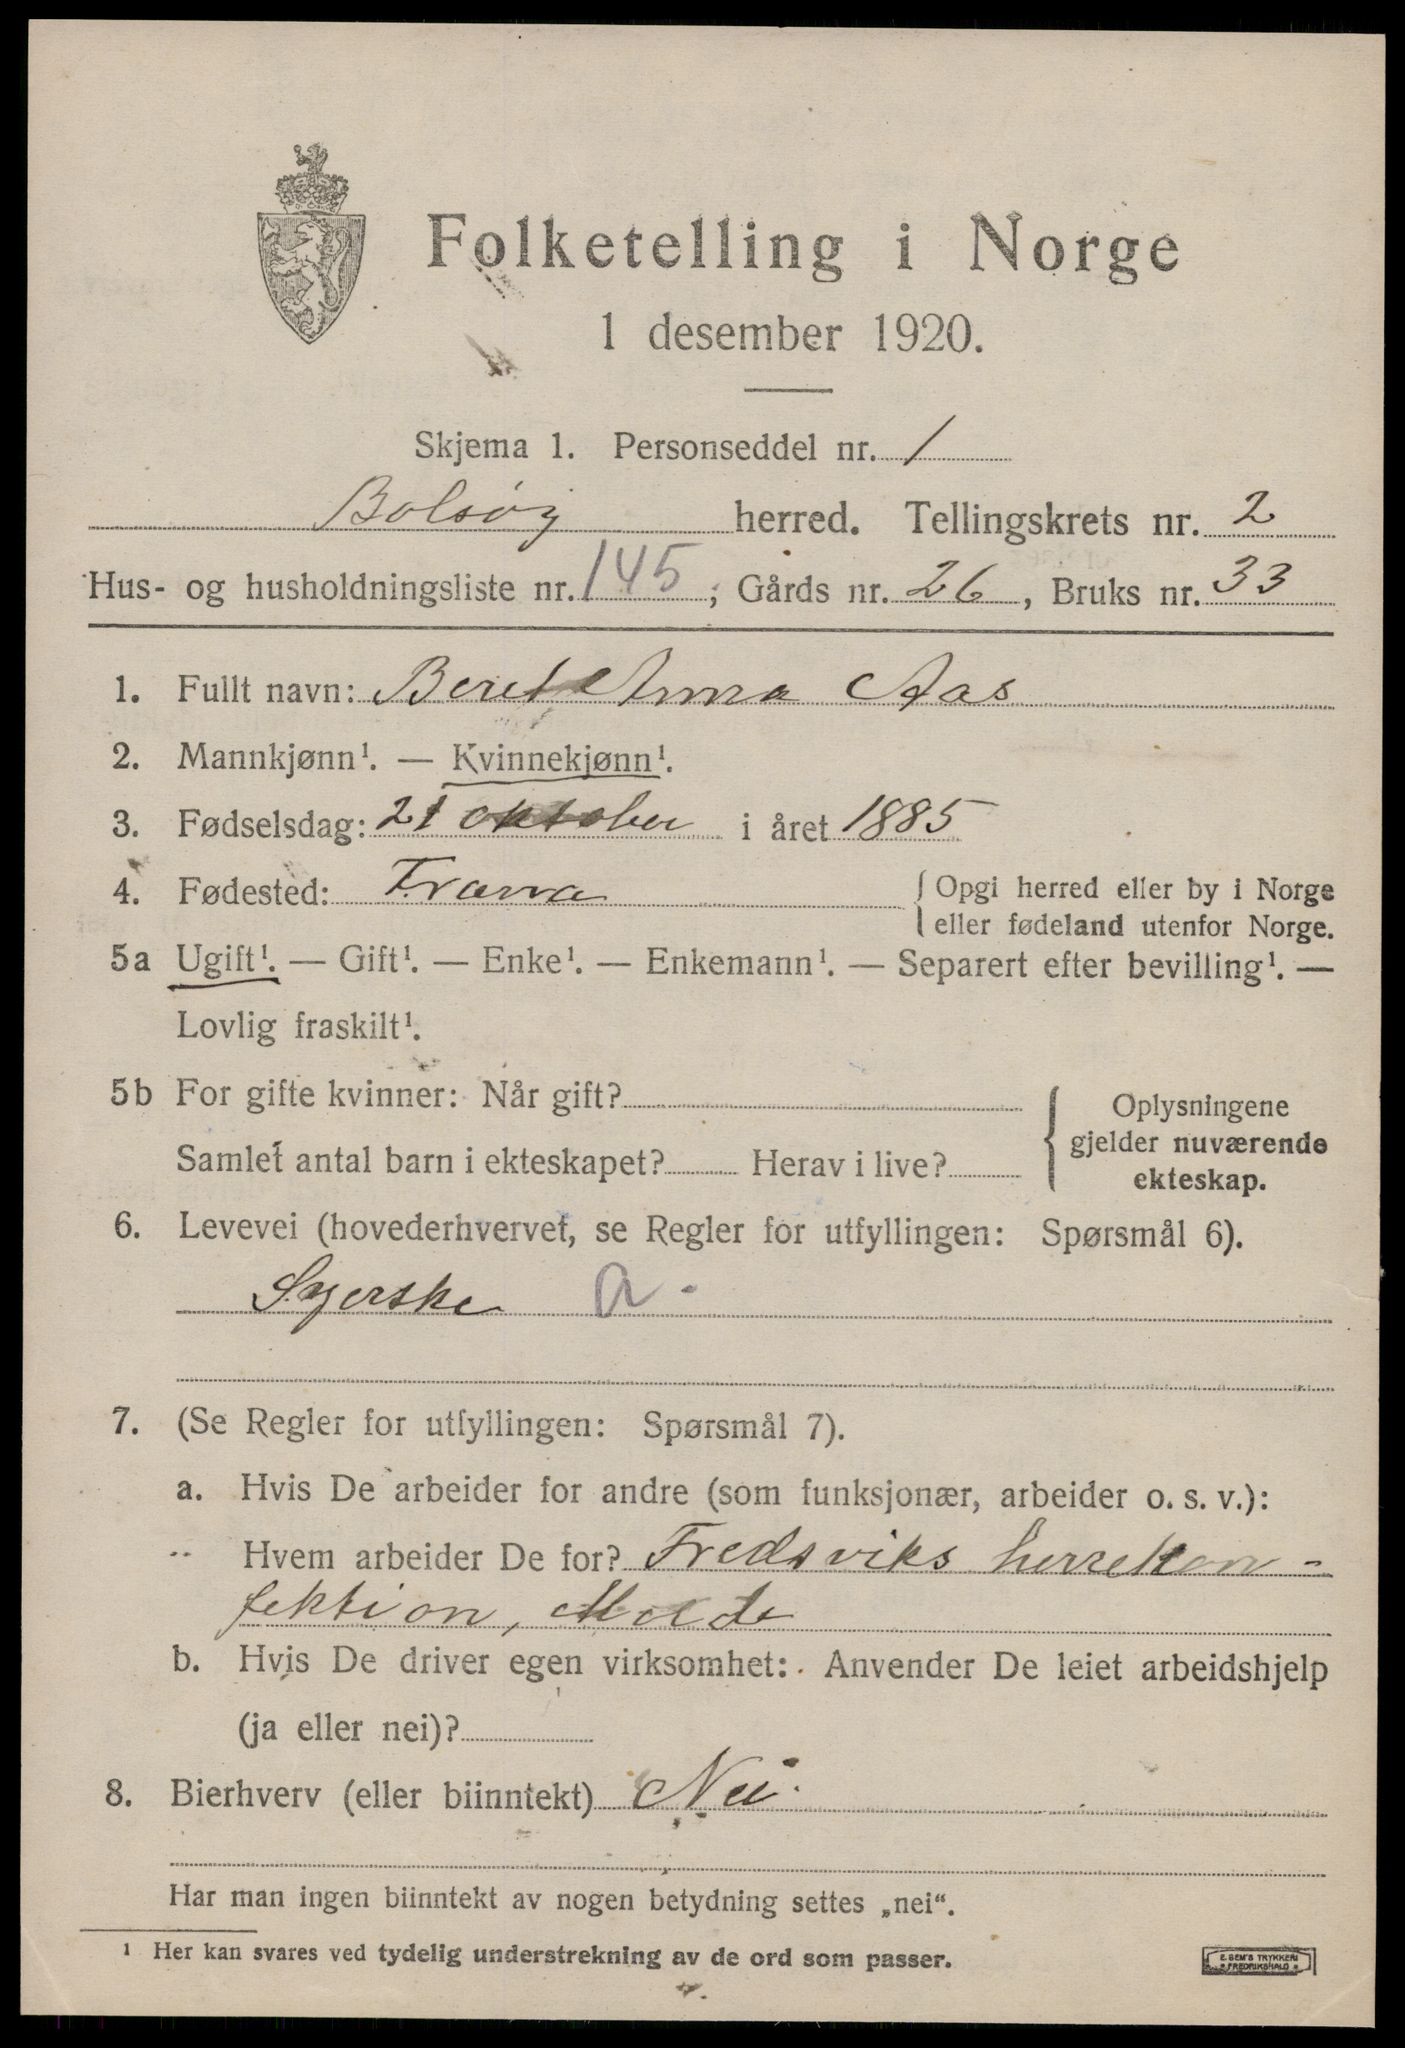 Folketelling i Norge
1 desember 1920.
Skjema 1. Personseddel nr. 1
Bolsøy herred. Tellingskrets nr. 2
Hus- og husholdningsliste nr. 145; Gårds nr. 26, Bruks nr. 33
1. Fullt navn: Beret Anna Aas
2. Mannkjønn¹. — Kvinnekjønn¹.
3. Fødselsdag: 21 oktober i året 1885
4. Fødested: Fræna { Opgi herred eller by i Norge
eller fødeland utenfor Norge.
5a Ugift¹. — Gift¹. — Enke¹. — Enkemann¹. — Separert efter bevilling¹. —
Lovlig fraskilt¹.
5b For gifte kvinner: Når gift?
Samlet antal barn i ekteskapet? Herav i live?
{ Oplysningene
gjelder nuværende
ekteskap.
6. Levevei (hovederhvervet, se Regler for utfyllingen: Spørsmål 6).
Syerske a.
7. (Se Regler for utfyllingen: Spørsmål 7).
a. Hvis De arbeider for andre (som funksjonær, arbeider o. s. v.):
Hvem arbeider De for? Fredsviks herrekon-
fektion, Molde
b. Hvis De driver egen virksomhet: Anvender De leiet arbeidshjelp
(ja eller nei)?
8. Bierhverv (eller biinntekt) Nei.
Har man ingen biinntekt av nogen betydning settes „nei“.
¹ Her kan svares ved tydelig understrekning av de ord som passer.
E. SEM'S TRYKKERI
FREDRIKSHALD